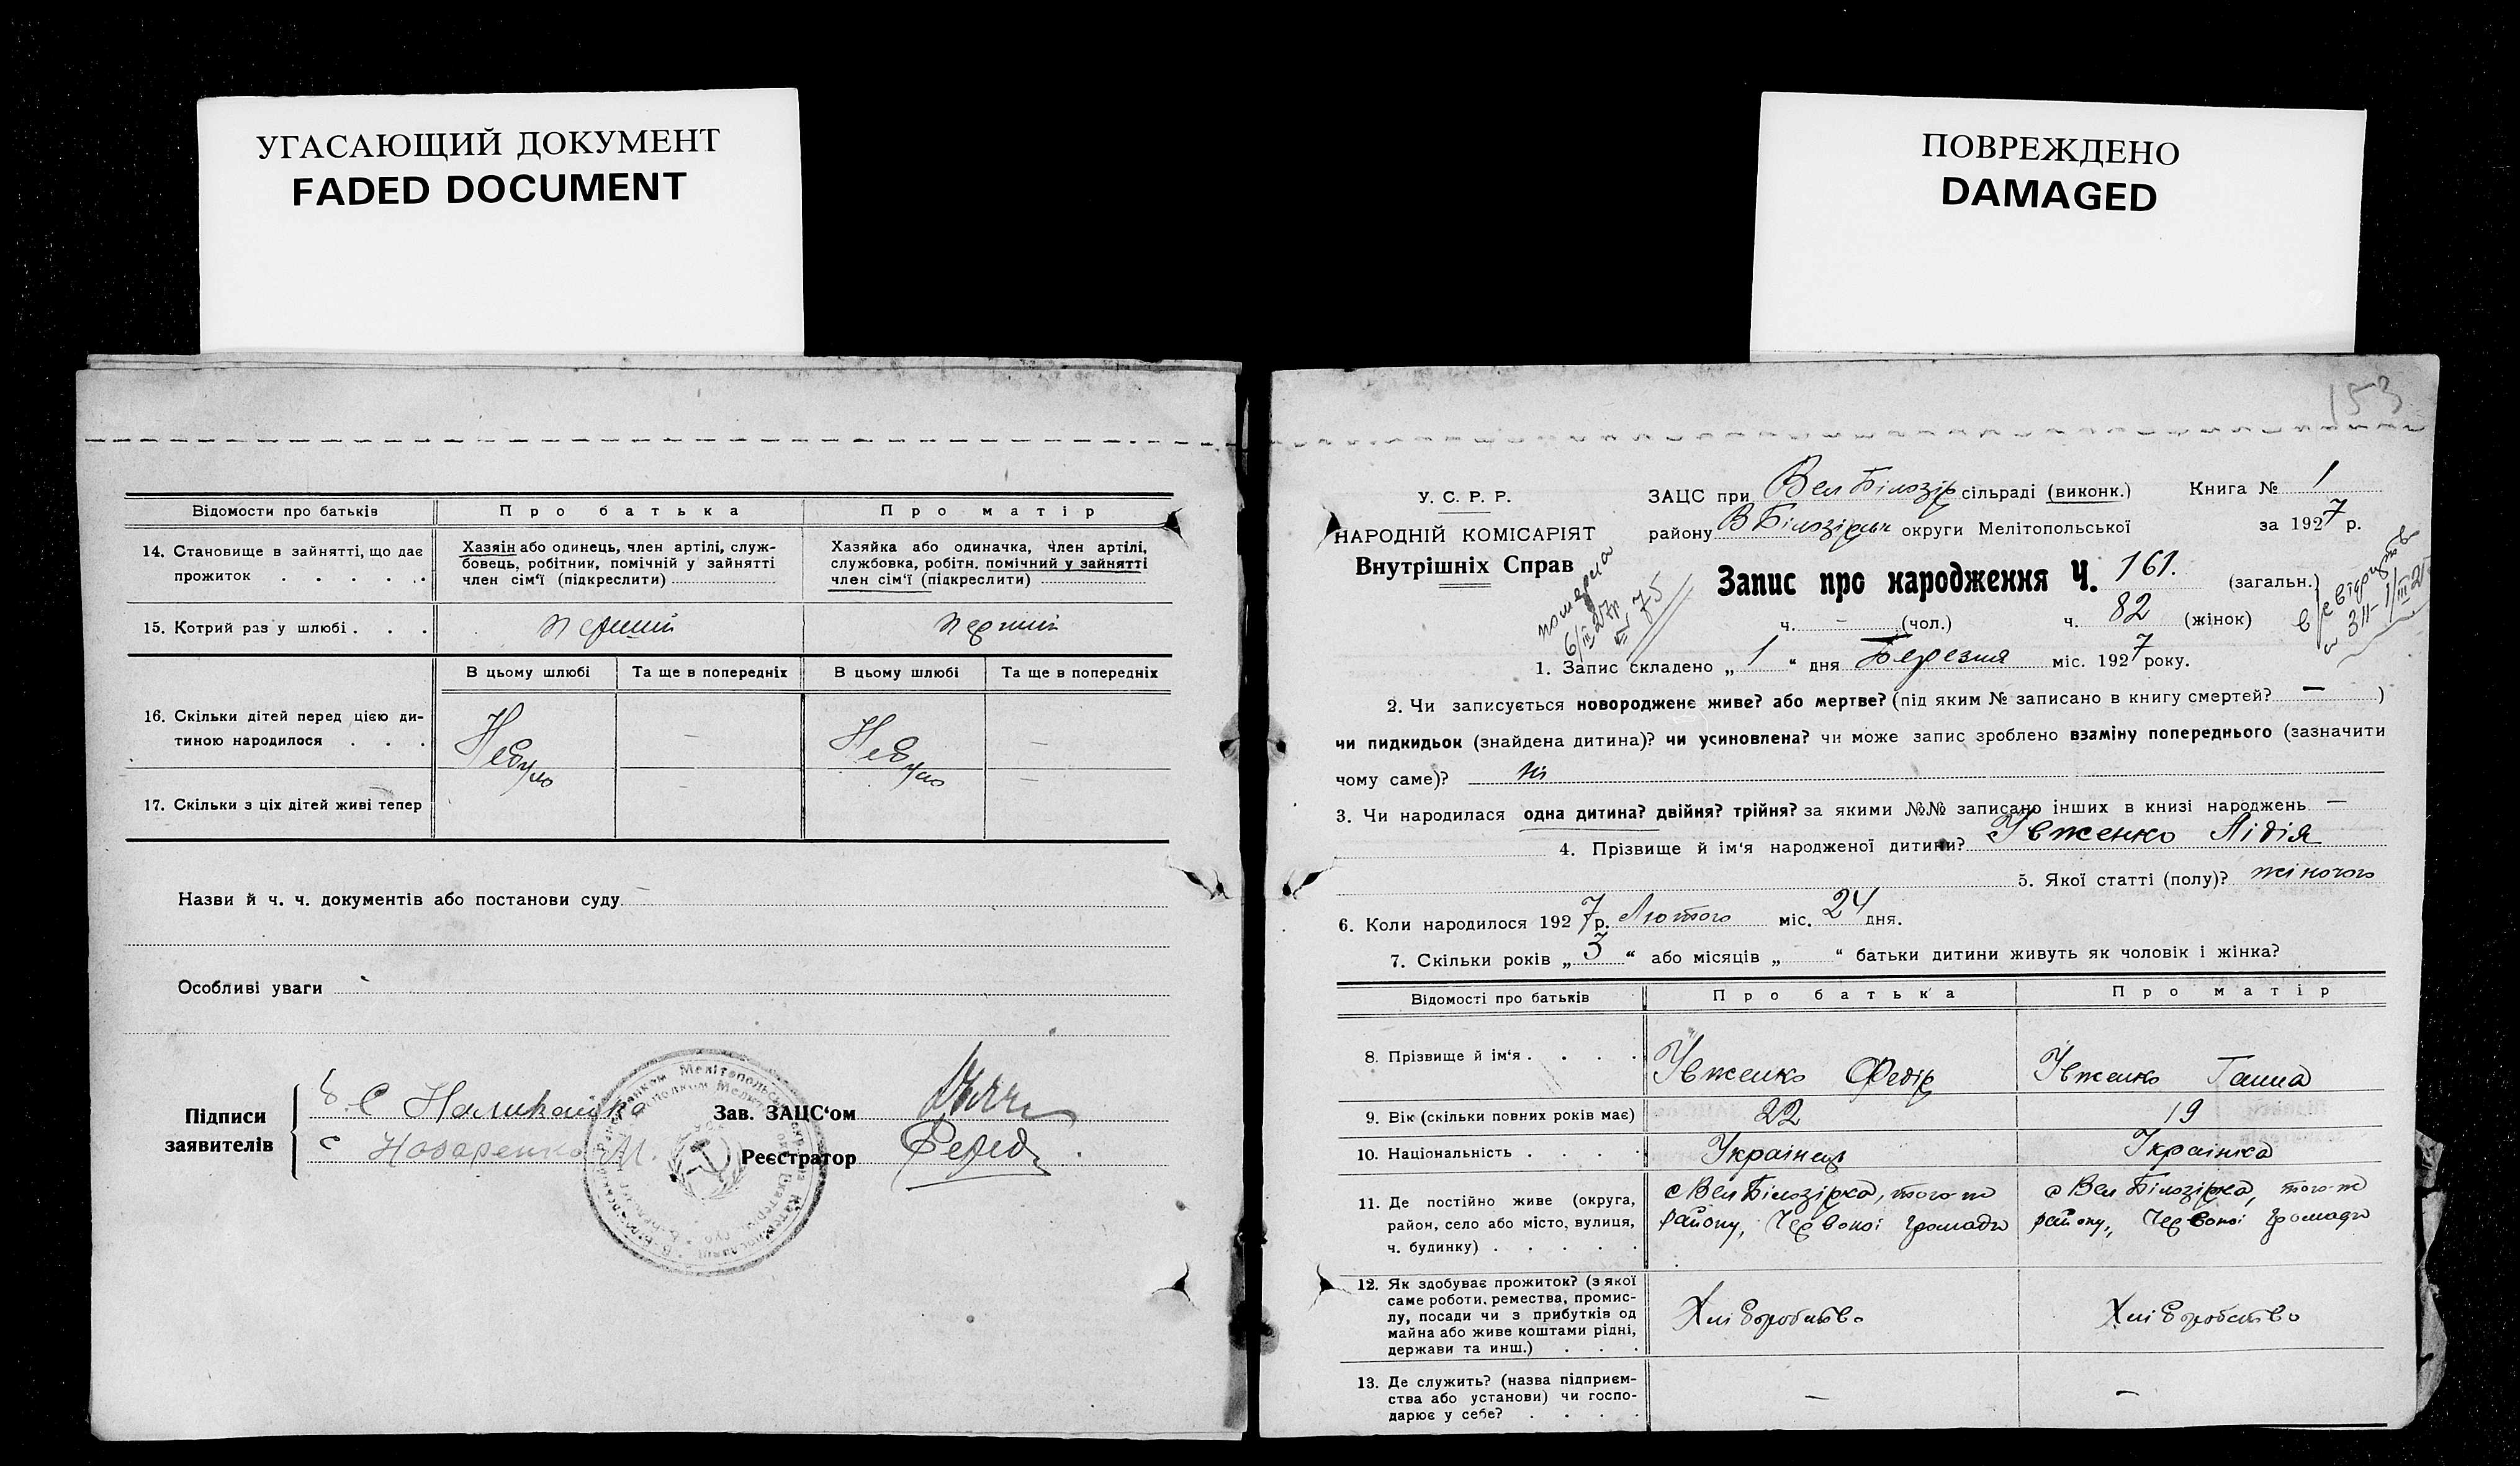 УГАСАЮЩИЙ ДОКУМЕНТ
FADED DOCUMENT
ПОВРЕЖДЕНО
DAMAGED
Відомости про батьків
Про батька
Про матір
14. Становище в зайнятті, що дає
прожиток . . . . .
Хазяін або одинець, член артілі, служ-
бовець, робітник, помічній у зайнятті
член сім'ї (підкреслити)
Хазяйка або одиначка, член артілі,
службовка, робітн. помічний у зайнятті
член сім'ї (підкреслити)
15. Котрий раз у шлюбі . . .
перший
перший
В цьому шлюбі
Та ще в попередніх
В цьому шлюбі
Та ще в попередніх
16. Скільки дітей перед цією ди-
тиною народилося . . .
Небуло
—
Небуло
—
17. Скільки з ціх дітей живі тепер
—
Назви й ч. ч. документів або постанови суду
Особливі уваги
Підписи
заявителів
С Наливайка
с Назаренко М.
Зав. ЗАЦС'ом
Реєстратор
153
У. С. Р. Р.
НАРОДНІЙ КОМІСАРІЯТ
Внутрішніх Справ
ЗАЦС при Вел Білозір сільраді (виконк.)
Книга № 1
району В Білозірськ округи Мелітопольської
за 1927 р.
Запис про народження Ч. 161. (загальн.)
померла
6/III 27р
75
ч. — (чол.)
ч. 82 (жінок)
1. Запис складено „ 1 “ дня Березня міс. 1927 року.
2. Чи записується новороджене живе? або мертве? (під яким № записано в книгу смертей? — )
чи пидкидьок (знайдена дитина)? чи усиновлена? чи може запис зроблено взаміну попереднього (зазначити
чому саме)? ні
3. Чи народилася одна дитина? двійня? трійня? за якими №№ записано інших в книзі народжень —
4. Прізвище й ім'я народженої дитини? Ївженко Лідія
5. Якої статті (полу)? жіночого
6. Коли народилося 1927 р. Лютого міс. 24 дня.
7. Скільки років „ 3 “ або місяців „ “ батьки дитини живуть як чоловік і жінка?
Відомості про батьків
Про батька
Про матір
8. Прізвище й ім'я . . . .
Ївженко Федір
Ївженко Ганна
9. Вік (скільки повних років має)
22
19
10. Національність . . . .
Українець
Українка
11. Де постійно живе (округа,
район, село або місто, вулиця,
ч. будинку) . . . . .
с Вел Білозірка, того-ж
району, Червоної громади
с Вел Білозірка, того-ж
району, Червоної громади
12. Як здобуває прожиток? (з якої
саме роботи, ремества, промис-
лу, посади чи з прибутків од
майна або живе коштами рідні,
держави та инш.) . . .
Хліборобство
Хліборобство
13. Де служить? (назва підприєм-
ства або установи) чи госпо-
дарює у себе? . . . .
—
—